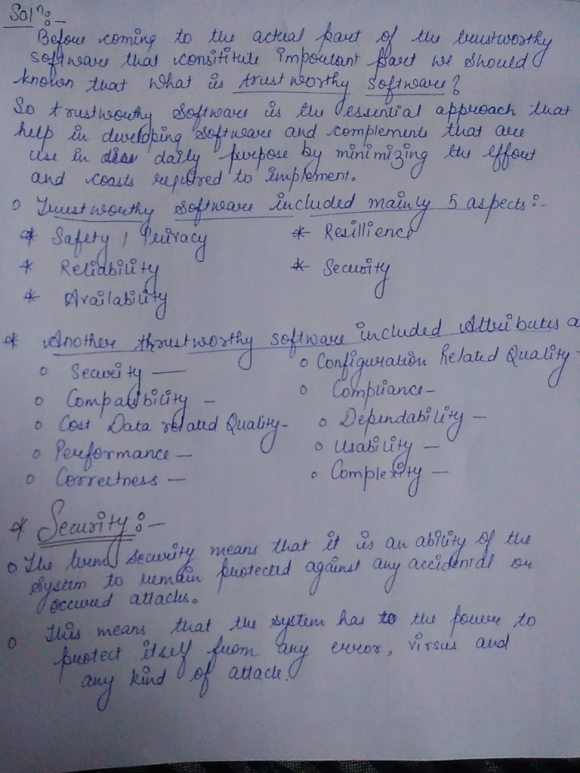 Solⁿ:-
Before coming to the actual part of the trustworthy
software that consititute important part we should
known that what is trust worthy software?
So trustworthy software is the essential approach that
help in developing software and complements that are
use in daily purpose by minimizing the effort
and coasts required to implement.
Trustworthy software included mainly 5 aspects:-
* Safety / Privacy * Resillience
* Reliability * Security
* Availability
* Another thrustworthy software included Attributes a
Security — Configuration Related Quality -
Compatibility - Compliance -
Cost Data related Quality - Dependability -
Performance - Usability -
Correctness - Complexity -
* Security :-
The term security means that it is an ability of the
system to remain protected against any accidental or
occured attacks.
This means that the system has to the power to
protect itself from any error, virsus and
any kind of attack.